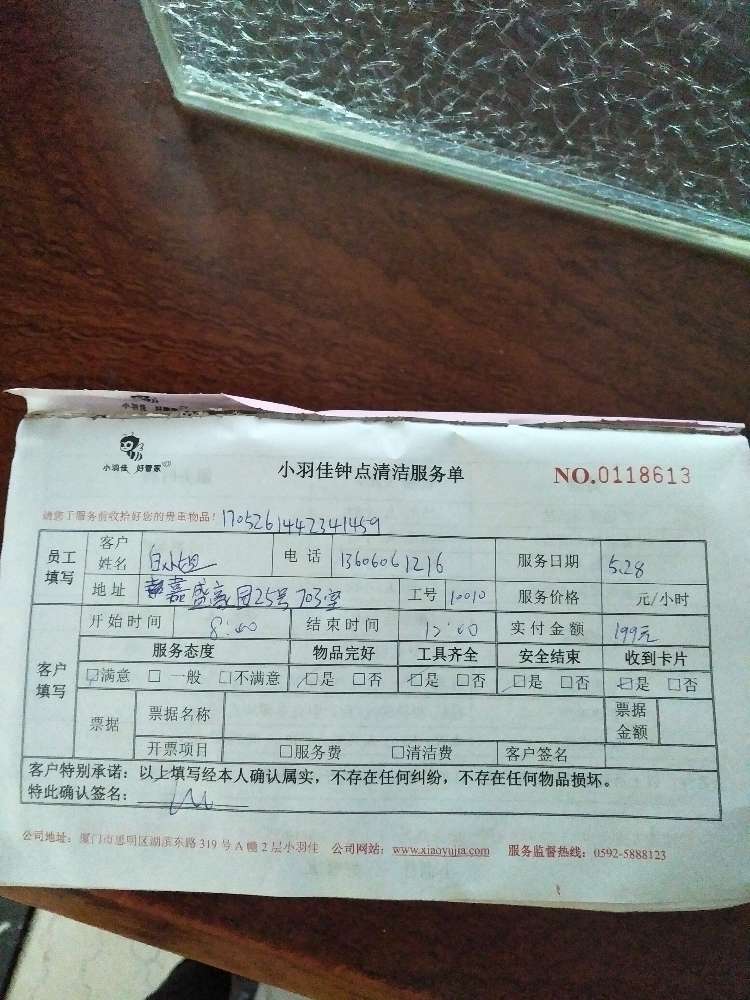 小羽佳 好管家
小羽佳钟点清洁服务单
NO.0118613
请您于服务前收拾好您的贵重物品！1705261442341459
员工填写 客户姓名 白小姐 电话 13606061216 服务日期 5.28
地址 嘉盛豪园25号703室 工号 10010 服务价格 元/小时
客户填写 开始时间 8:00 结束时间 12:00 实付金额 199元
服务态度 物品完好 工具齐全 安全结束 收到卡片
☑满意 □一般 □不满意 ☑是 □否 ☑是 □否 ☑是 □否 ☑是 □否
票据 票据名称 票据金额
开票项目 □服务费 □清洁费 客户签名
客户特别承诺：以上填写经本人确认属实，不存在任何纠纷，不存在任何物品损坏。
特此确认签名：
公司地址：厦门市思明区湖滨东路319号A幢2层小羽佳 公司网站：www.xiaoyujia.com 服务监督热线：0592-5888123